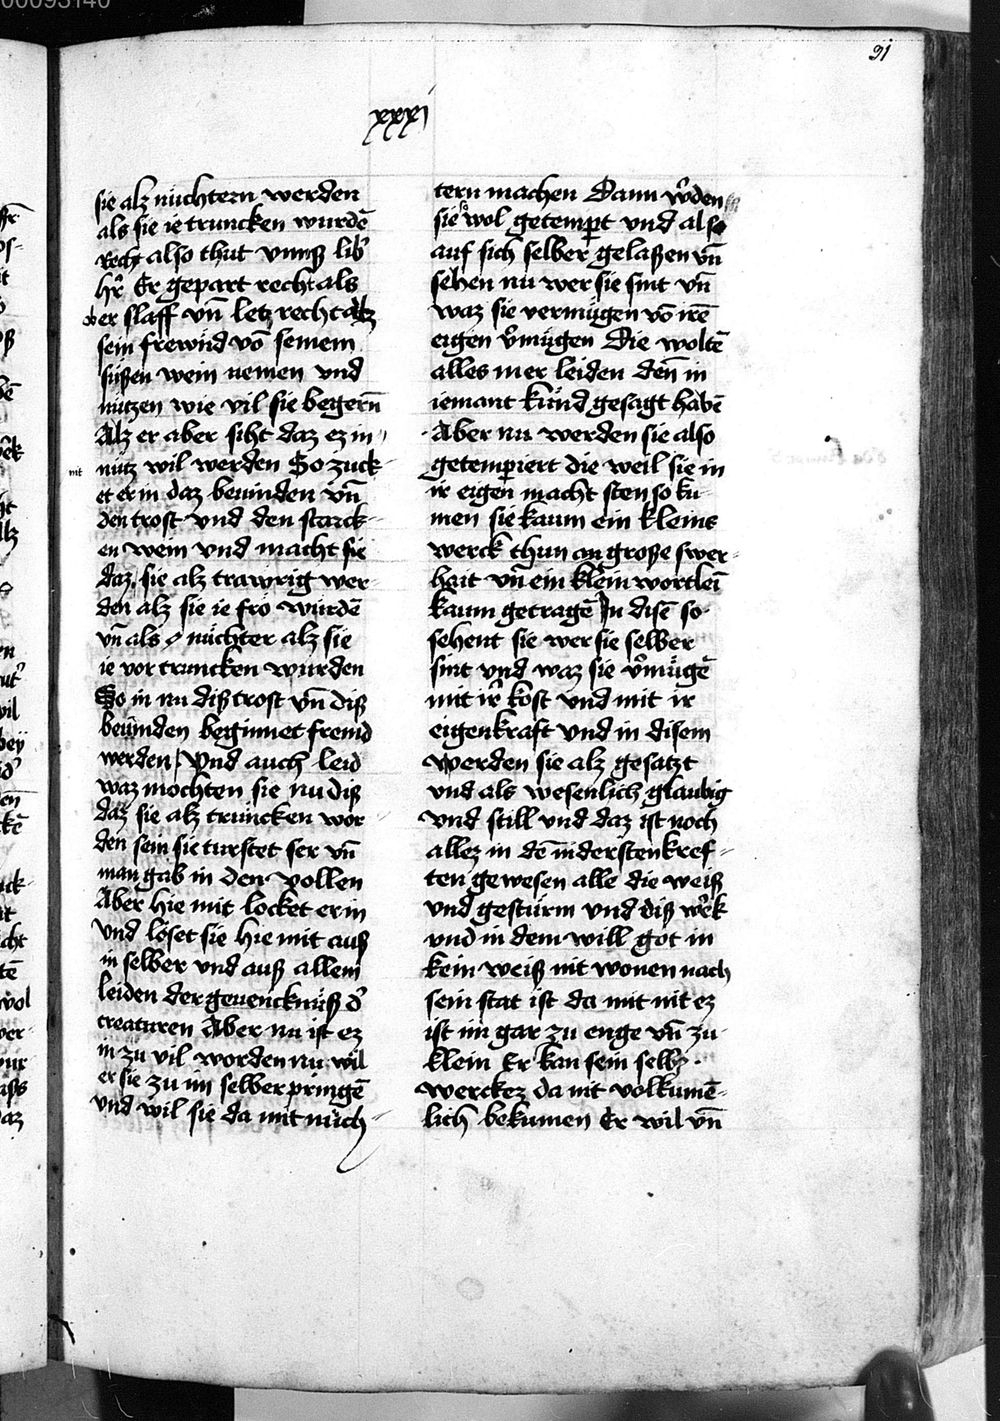 91
xxxj
sie alz nüchtern werden
als sie ie truncken wurdē
Recht also thut vnnß lib᷑
hr᷑ Er gepart recht als
ob er slaff vn̄ letz recht alz
sein frewnd vō seinem
süßen wein nemen vnd
nützen wie vil sie begern̄
Alz er aber siht daz ez in
nit nütz wil werden So zuck
et er in daz beuinden vn̄
den trost vnd den starck
en wein vnd macht sie
daz sie alz trawrig wer
den alz sie ie fro wurdē
vn̄ als nüchter alz sie
ie vor truncken wurden
So in nu diß trost vn̄ diß
beuinden beginnet fremd
werden Vnd auch leid
waz mochten sie nu diß
daz sie alz truncken wor
den sein sie turstet ser vn̄
man gab in den vollen
Aber hie mit locket er in
vnd löset sie hie mit auß
in selber vnd auß allem
leiden der geuencknüß d᷑
creaturen Aber nu ist ez
in zu vil worden nu wil
er sie zu im selber pringē
vnd wil sie da mit nüch
tern machen Dann w᷑den
sie wol getempt vnd also
auf sich selber gelaßen vn̄
sehen nu wer sie sint vn̄
waz sie vermügen vō irē
eigen v᷑mügen Die woltē
alles mer leiden den̄ in
iemant künd gesagt habē
Aber nu werden sie also
getempiert die weil sie in
ir eigen macht sten so ku
men sie kaum ein kleins
werck thun an große swer
hait vn̄ ein klein wortlei
kaum getragē In disē so
sehent sie wer sie selber
sint vnd waz sie v᷑mügē
mit ir᷑ kost vnd mit ir
eigenkraft vnd in disem
werden sie alz gesatzt
vnd als wesenlich glaubig
vnd still vnd daz ist noch
allez in dē niderstenkref
ten gewesen alle die weiß
vnd gestürm vnd diß w᷑ck
vnd in dem will got in
kein weiß nit wonen nach
sein stat ist da mit nit ez
ist im gar zu enge vn̄ zu
klein Er kan sein selbs
werckez da nit volkumē
lich bekumen Er wil vn̄